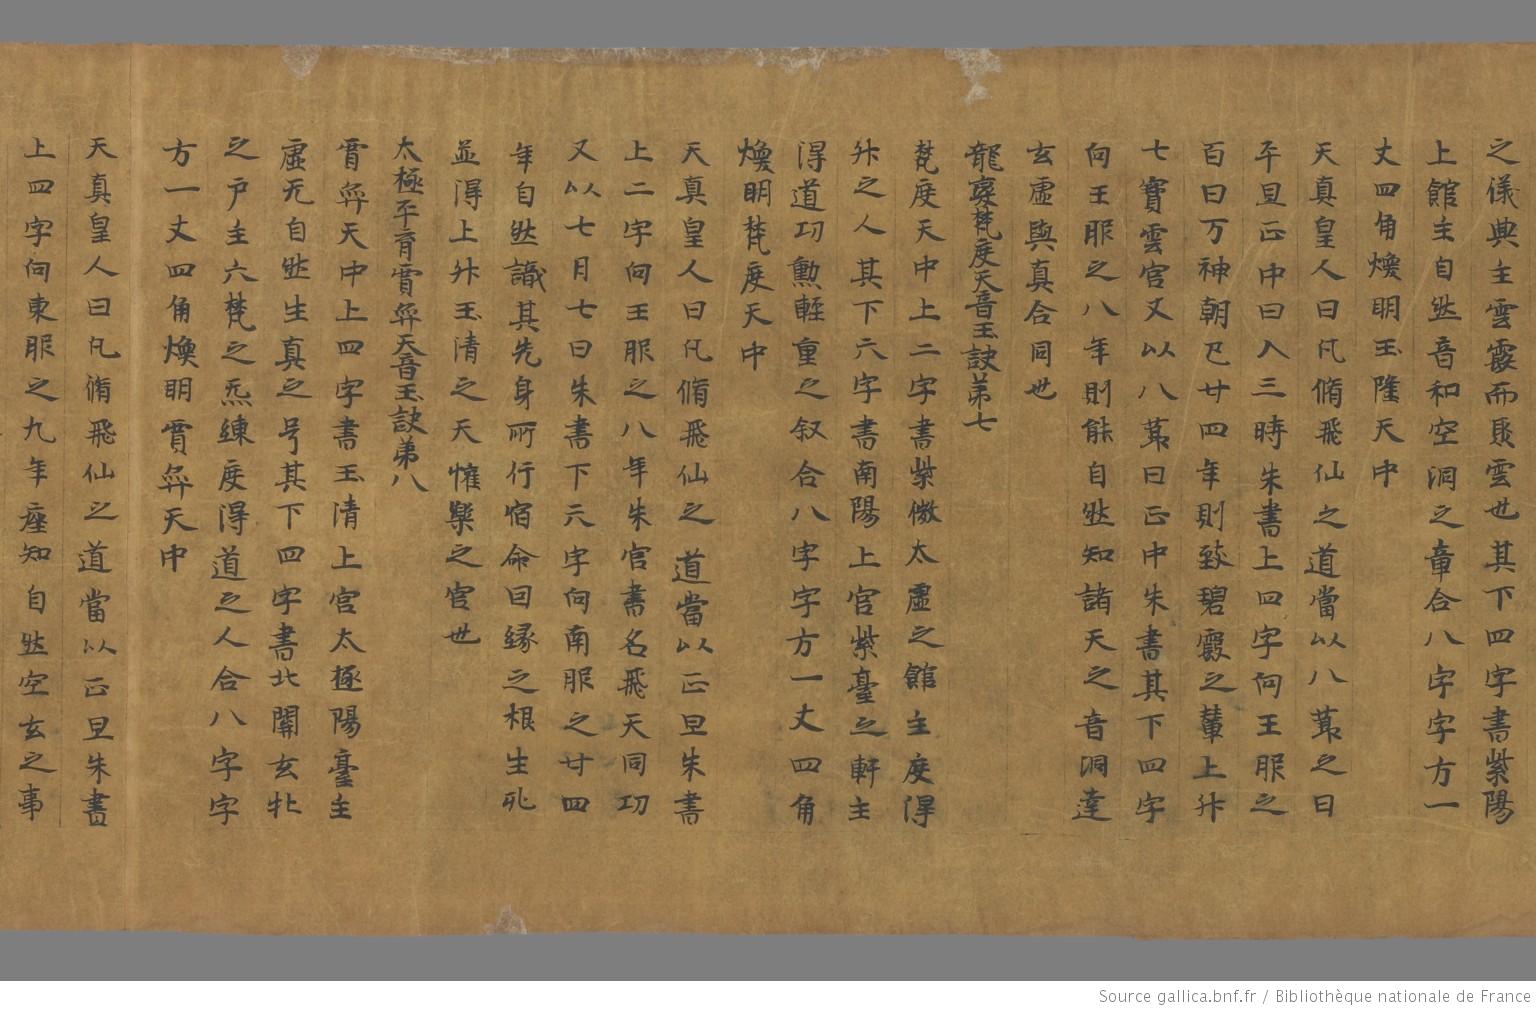 之儀典主雲霞而聚雲也其下四字書紫陽
上館主自然音和空洞之章合八字字方一
丈四角煥明玉隆天中
天真皇人曰凡脩飛仙之道當以八莭之日
平旦正中日入三時朱書上四字向王服之
百日万神朝己廿四年則致碧霞之輦上升
七寶雲宮又以八莭日正中朱書其下四字
向王服之八年則能自然知諸天之音洞達
玄虛與真合同也
龍變梵度天音玉訣第七
梵度天中上二字書紫微太虛之館主度得
升之人其下六字書南陽上宮紫臺之軒主
得道功勳輕重之叙合八字字方一丈四角
煥明梵度天中
天真皇人曰凡脩飛仙之道當以正旦朱書
上二字向王服之八年朱宮書名飛天同功
又以七月七日朱書下六字向南服之廿四
年自然識其先身所行宿命因緣之根生死
並得上升玉清之天懽樂之宮也
太極平育賈奕天音玉訣第八
賈奕天中上四字書玉清上宮太極陽臺主
虛无自然生真之号其下四字書北闈玄牝
之户主六梵之炁練度得道之人合八字字
方一丈四角煥明賈奕天中
天真皇人曰凡脩飛仙之道當以正旦朱書
上四字向東服之九年㘴知自然空玄之事
Source gallica.bnf.fr / Bibliothèque nationale de France